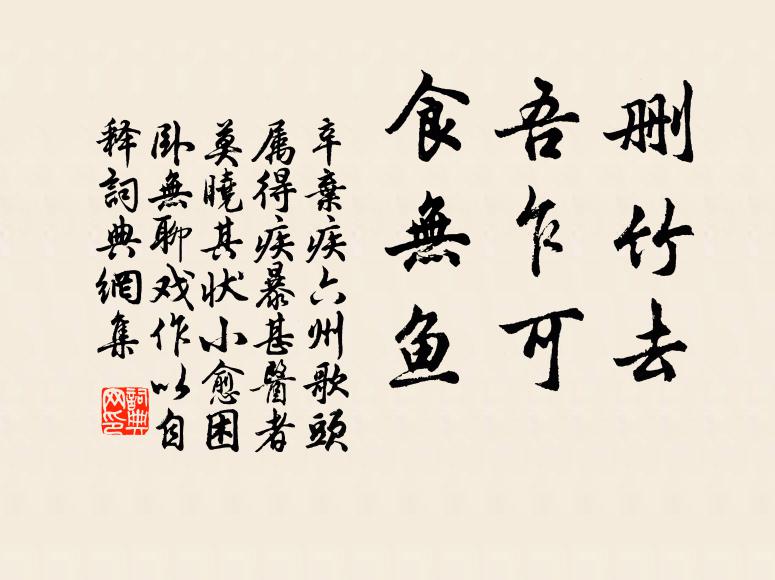 删竹去
吾乍可
食無鱼
辛棄疾六州歌頭
属得疾暴甚醫者
莫曉其状小愈困
卧無聊戏作以自
释詞典網集
詞典
网印